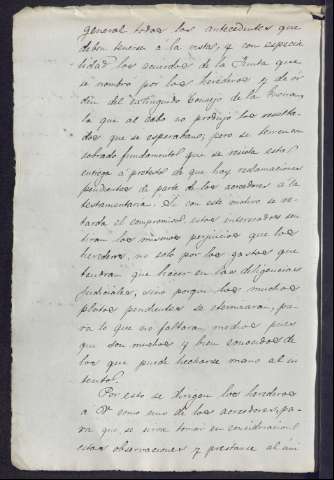 general todos los antecedentes que
deben tenerse a la vista, y con especia
lidad los acuerdos de la Junta que
se nombró por los herederos y de ór
den del extinguido Consejo de la
la que al cabo no produjo los resulta
dos que se esperaban; pero se teme con
sobrado fundamento que se resista esta
entrega a protesto de que hay reclamaciones
pendientes de parte de los acreedores a la
testamentaria. Si con este motivo se re-
tarda el compromiso, estos interesados sen
tiran los mismos perjuicios que los
herederos, no solo por los gastos que
tendran que hacer en las diligencias
judiciales, sino porque los muchos
pleitos pendientes se eternizaran, pa-
ra lo que no faltaran medios pues
que son muchos y bien conocidos de
los que puede hecharse mano al in
tento.
Por esto se dirigen los herederos
a V. como uno de los acreedores, pa-
ra que, se sirva tomar en consideracion
estas observaciones y prestarse al áni